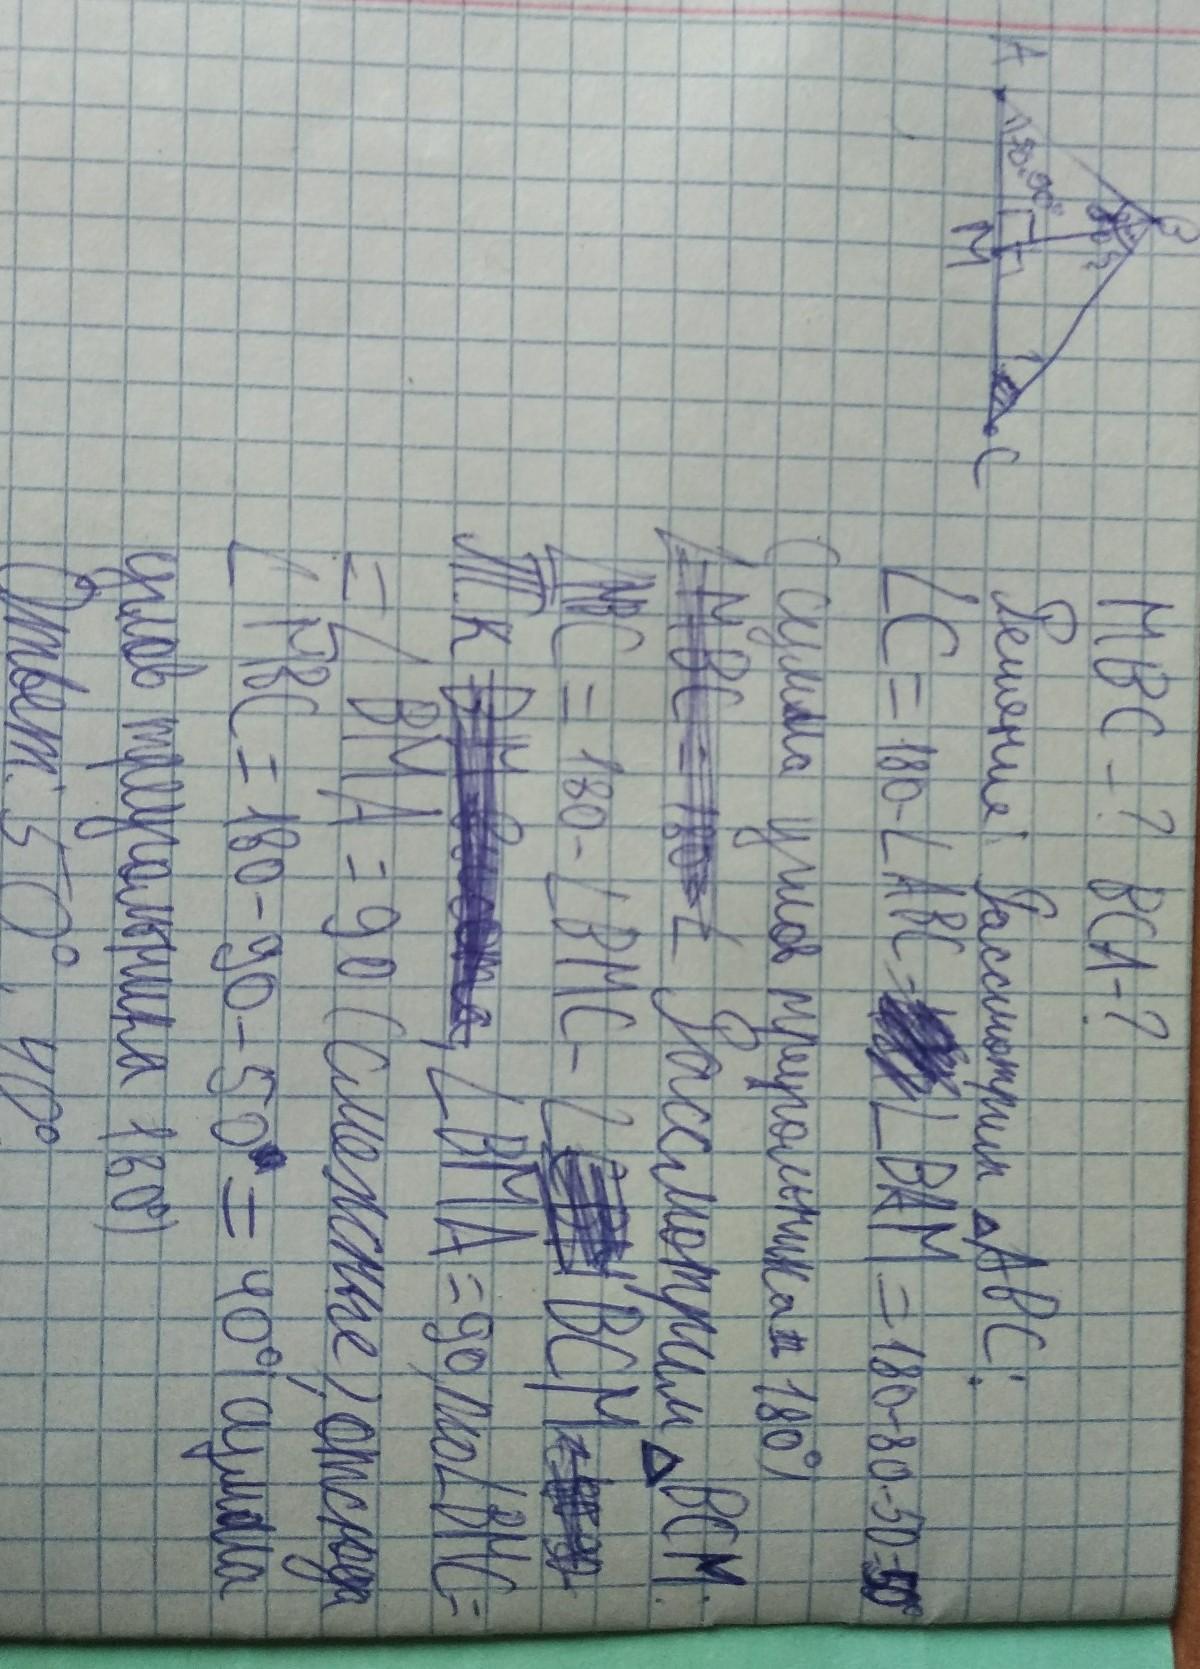 A
B
M
C
MBC - ? BCA - ?
Решение: Рассмотрим △ABC:
∠C = 180 - ∠ABC - ∠BAM = 180 - 80 - 50 = 50°
(сумма углов треугольника 180°)
∠MBC = 180 - ∠ Рассмотрим △BCM:
MBC = 180 - ∠BMC - ∠BCM
Т.к ∠BMA = 90, то ∠BMC =
= ∠BMA = 90 (смежные), отсюда
∠MBC = 180 - 90 - 50 = 40° (сумма
углов треугольника 180°)
Ответ: 50°, 40°